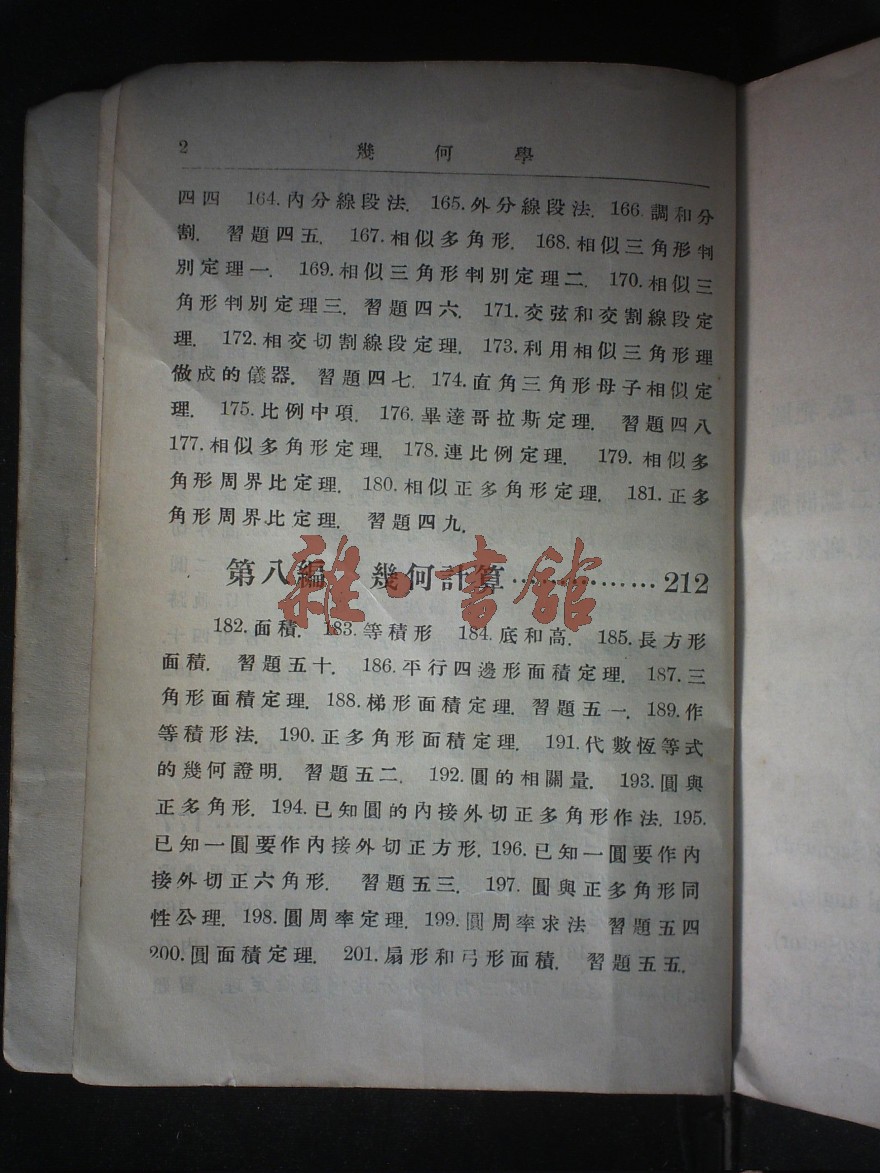 2 幾何學
四四 164.內分線段法. 165.外分線段法. 166.調和分
割. 習題四五. 167.相似多角形. 168.相似三角形判
別定理一. 169.相似三角形判別定理二. 170.相似三
角形判別定理三. 習題四六. 171.交弦和交割線段定
理. 172.相交切割線段定理. 173.利用相似三角形理
做成的儀器. 習題四七. 174.直角三角形母子相似定
理. 175.比例中項. 176.畢達哥拉斯定理. 習題四八
177.相似多角形定理. 178.連比例定理. 179.相似多
角形周界比定理. 180.相似正多角形定理. 181.正多
角形周界比定理. 習題四九.
第八編 幾何計算……………212
182.面積. 183.等積形 184.底和高. 185.長方形
面積. 習題五十. 186.平行四邊形面積定理. 187.三
角形面積定理. 188.梯形面積定理. 習題五一. 189.作
等積形法. 190.正多角形面積定理. 191.代數恆等式
的幾何證明. 習題五二. 192.圓的相關量. 193.圓與
正多角形. 194.已知圓的內接外切正多角形作法. 195.
已知一圓要作內接外切正方形. 196.已知一圓要作內
接外切正六角形. 習題五三. 197.圓與正多角形同
性公理. 198.圓周率定理. 199.圓周率求法 習題五四
200.圓面積定理. 201.扇形和弓形面積. 習題五五.
雜·書館